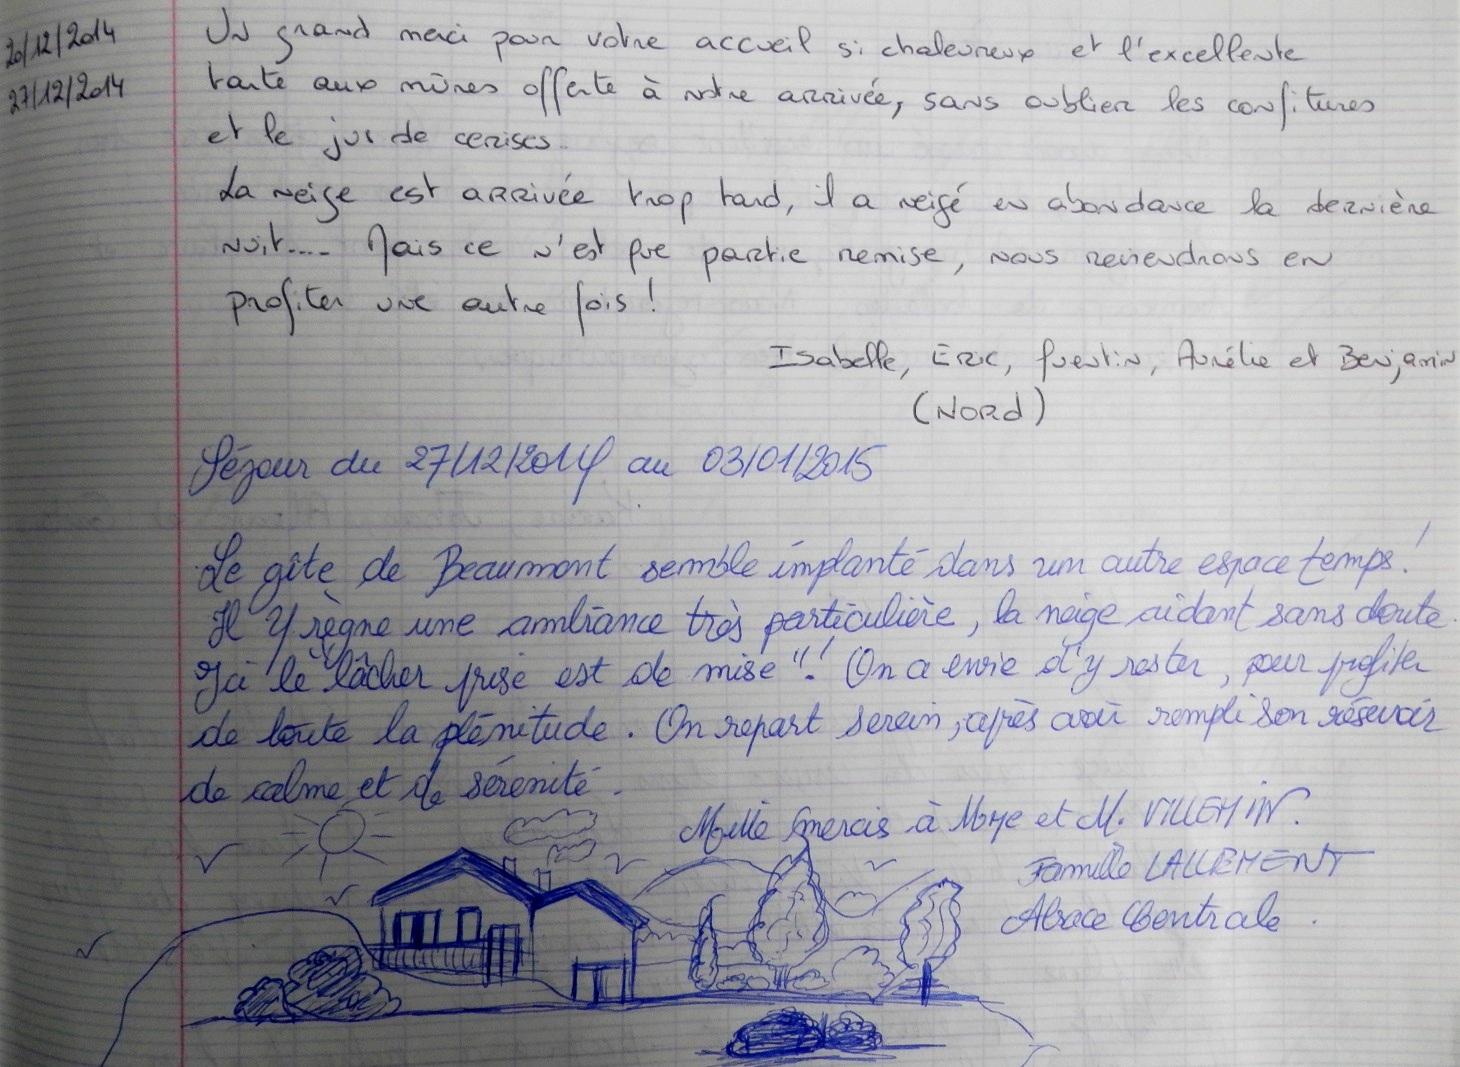 20/12/2014
27/12/2014
Un grand merci pour votre accueil si chaleureux et l'excellente
tarte aux mûres offerte à notre arrivée, sans oublier les confitures
et le jus de cerises.
La neige est arrivée trop tard, il a neigé en abondance la dernière
nuit.... Mais ce n'est que partie remise, nous reviendrons en
profiter une autre fois !
Isabelle, Eric, Quentin, Aurélie et Benjamin
(Nord)
Séjour du 27/12/2014 au 03/01/2015
Le gîte de Beaumont semble implanté dans un autre espace temps !
Il y règne une ambiance très particulière, la neige aidant sans doute.
Ici le "lâcher prise est de mise"! On a envie d'y rester, pour profiter
de toute la plénitude. On repart serein, après avoir rempli son réservoir
de calme et de sérénité.
Mille mercis à Mme et M. VILLEMIN.
Famille LALLEMENT
Alsace Centrale.